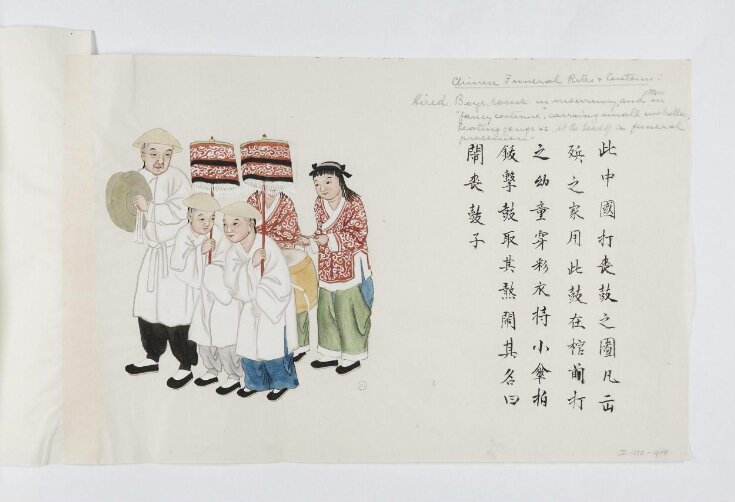 Chinese Funeral Rites & Customs.
Hired Boys, some in mourning and others in
"fancy costume", carrying small umbrellas,
beating gongs &c at the head of a funeral
procession.
此中國打喪鼓之圖凡出
殯之家用此鼓在棺前打
之幼童穿彩衣持小傘拍
鈸擊鼓取其熱鬧其名曰
鬧喪鼓子